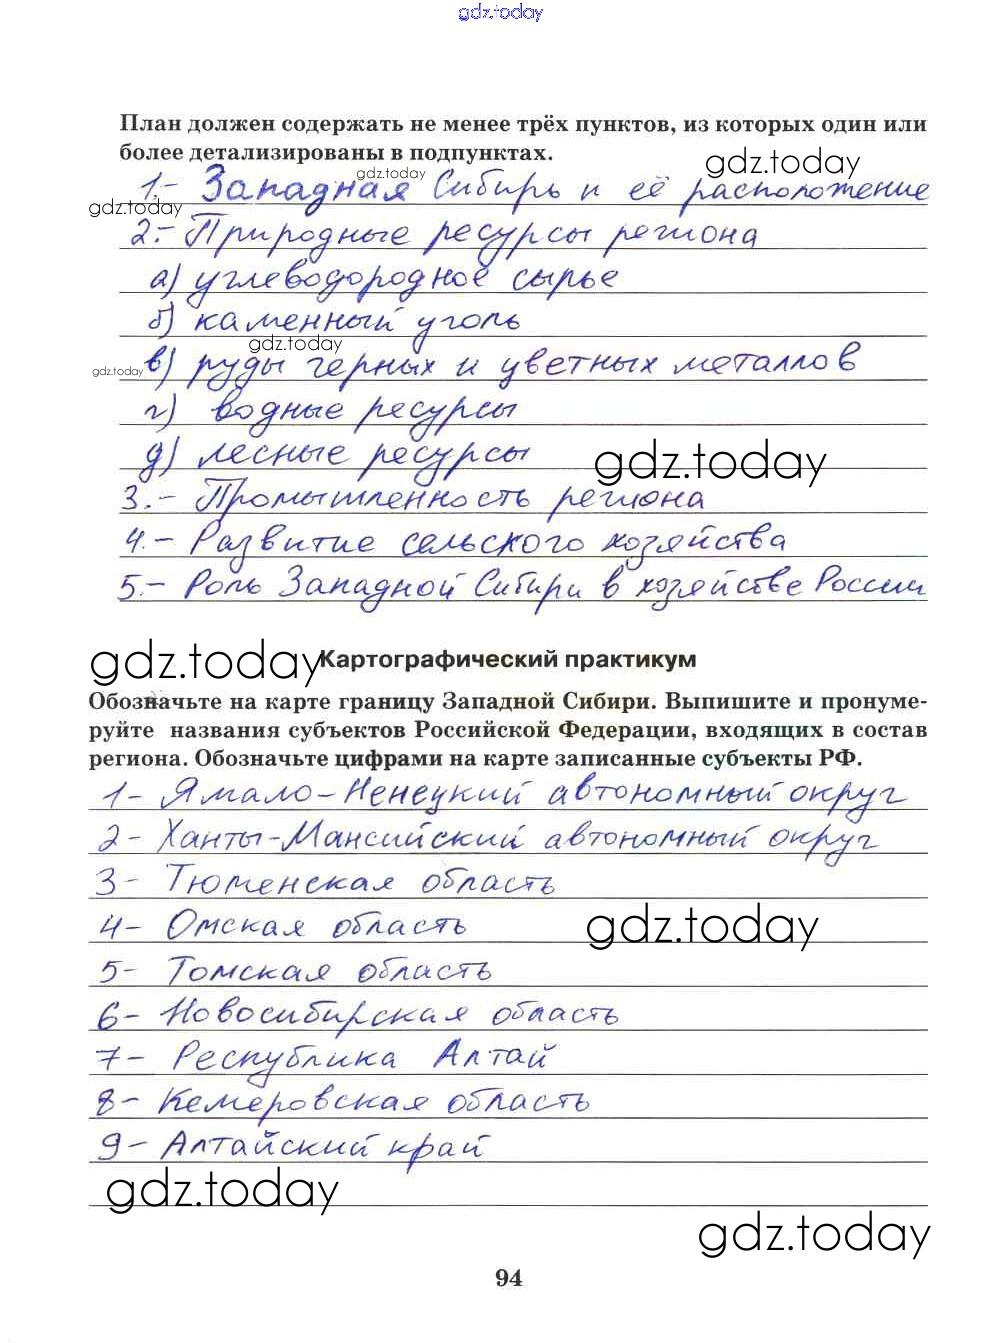 gdz.today
План должен содержать не менее трёх пунктов, из которых один или
более детализированы в подпунктах.
gdz.today
gdz.today
1.- Западная Сибирь и её расположение
gdz.today
2.- Природные ресурсы региона
а) углеводородное сырье
б) каменный уголь
gdz.today
в) руды черных и цветных металлов
gdz.today
г) водные ресурсы
д) лесные ресурсы
gdz.today
3.- Промышленность региона
4.- Развитие сельского хозяйства
5.- Роль Западной Сибири в хозяйстве России
gdz.today
Картографический практикум
Обозначьте на карте границу Западной Сибири. Выпишите и пронуме-
руйте названия субъектов Российской Федерации, входящих в состав
региона. Обозначьте цифрами на карте записанные субъекты РФ.
1- Ямало-Ненецкий автономный округ
2- Ханты-Мансийский автономный округ
3- Тюменская область
4- Омская область
gdz.today
5- Томская область
6- Новосибирская область
7- Республика Алтай
8- Кемеровская область
9- Алтайский край
gdz.today
gdz.today
94